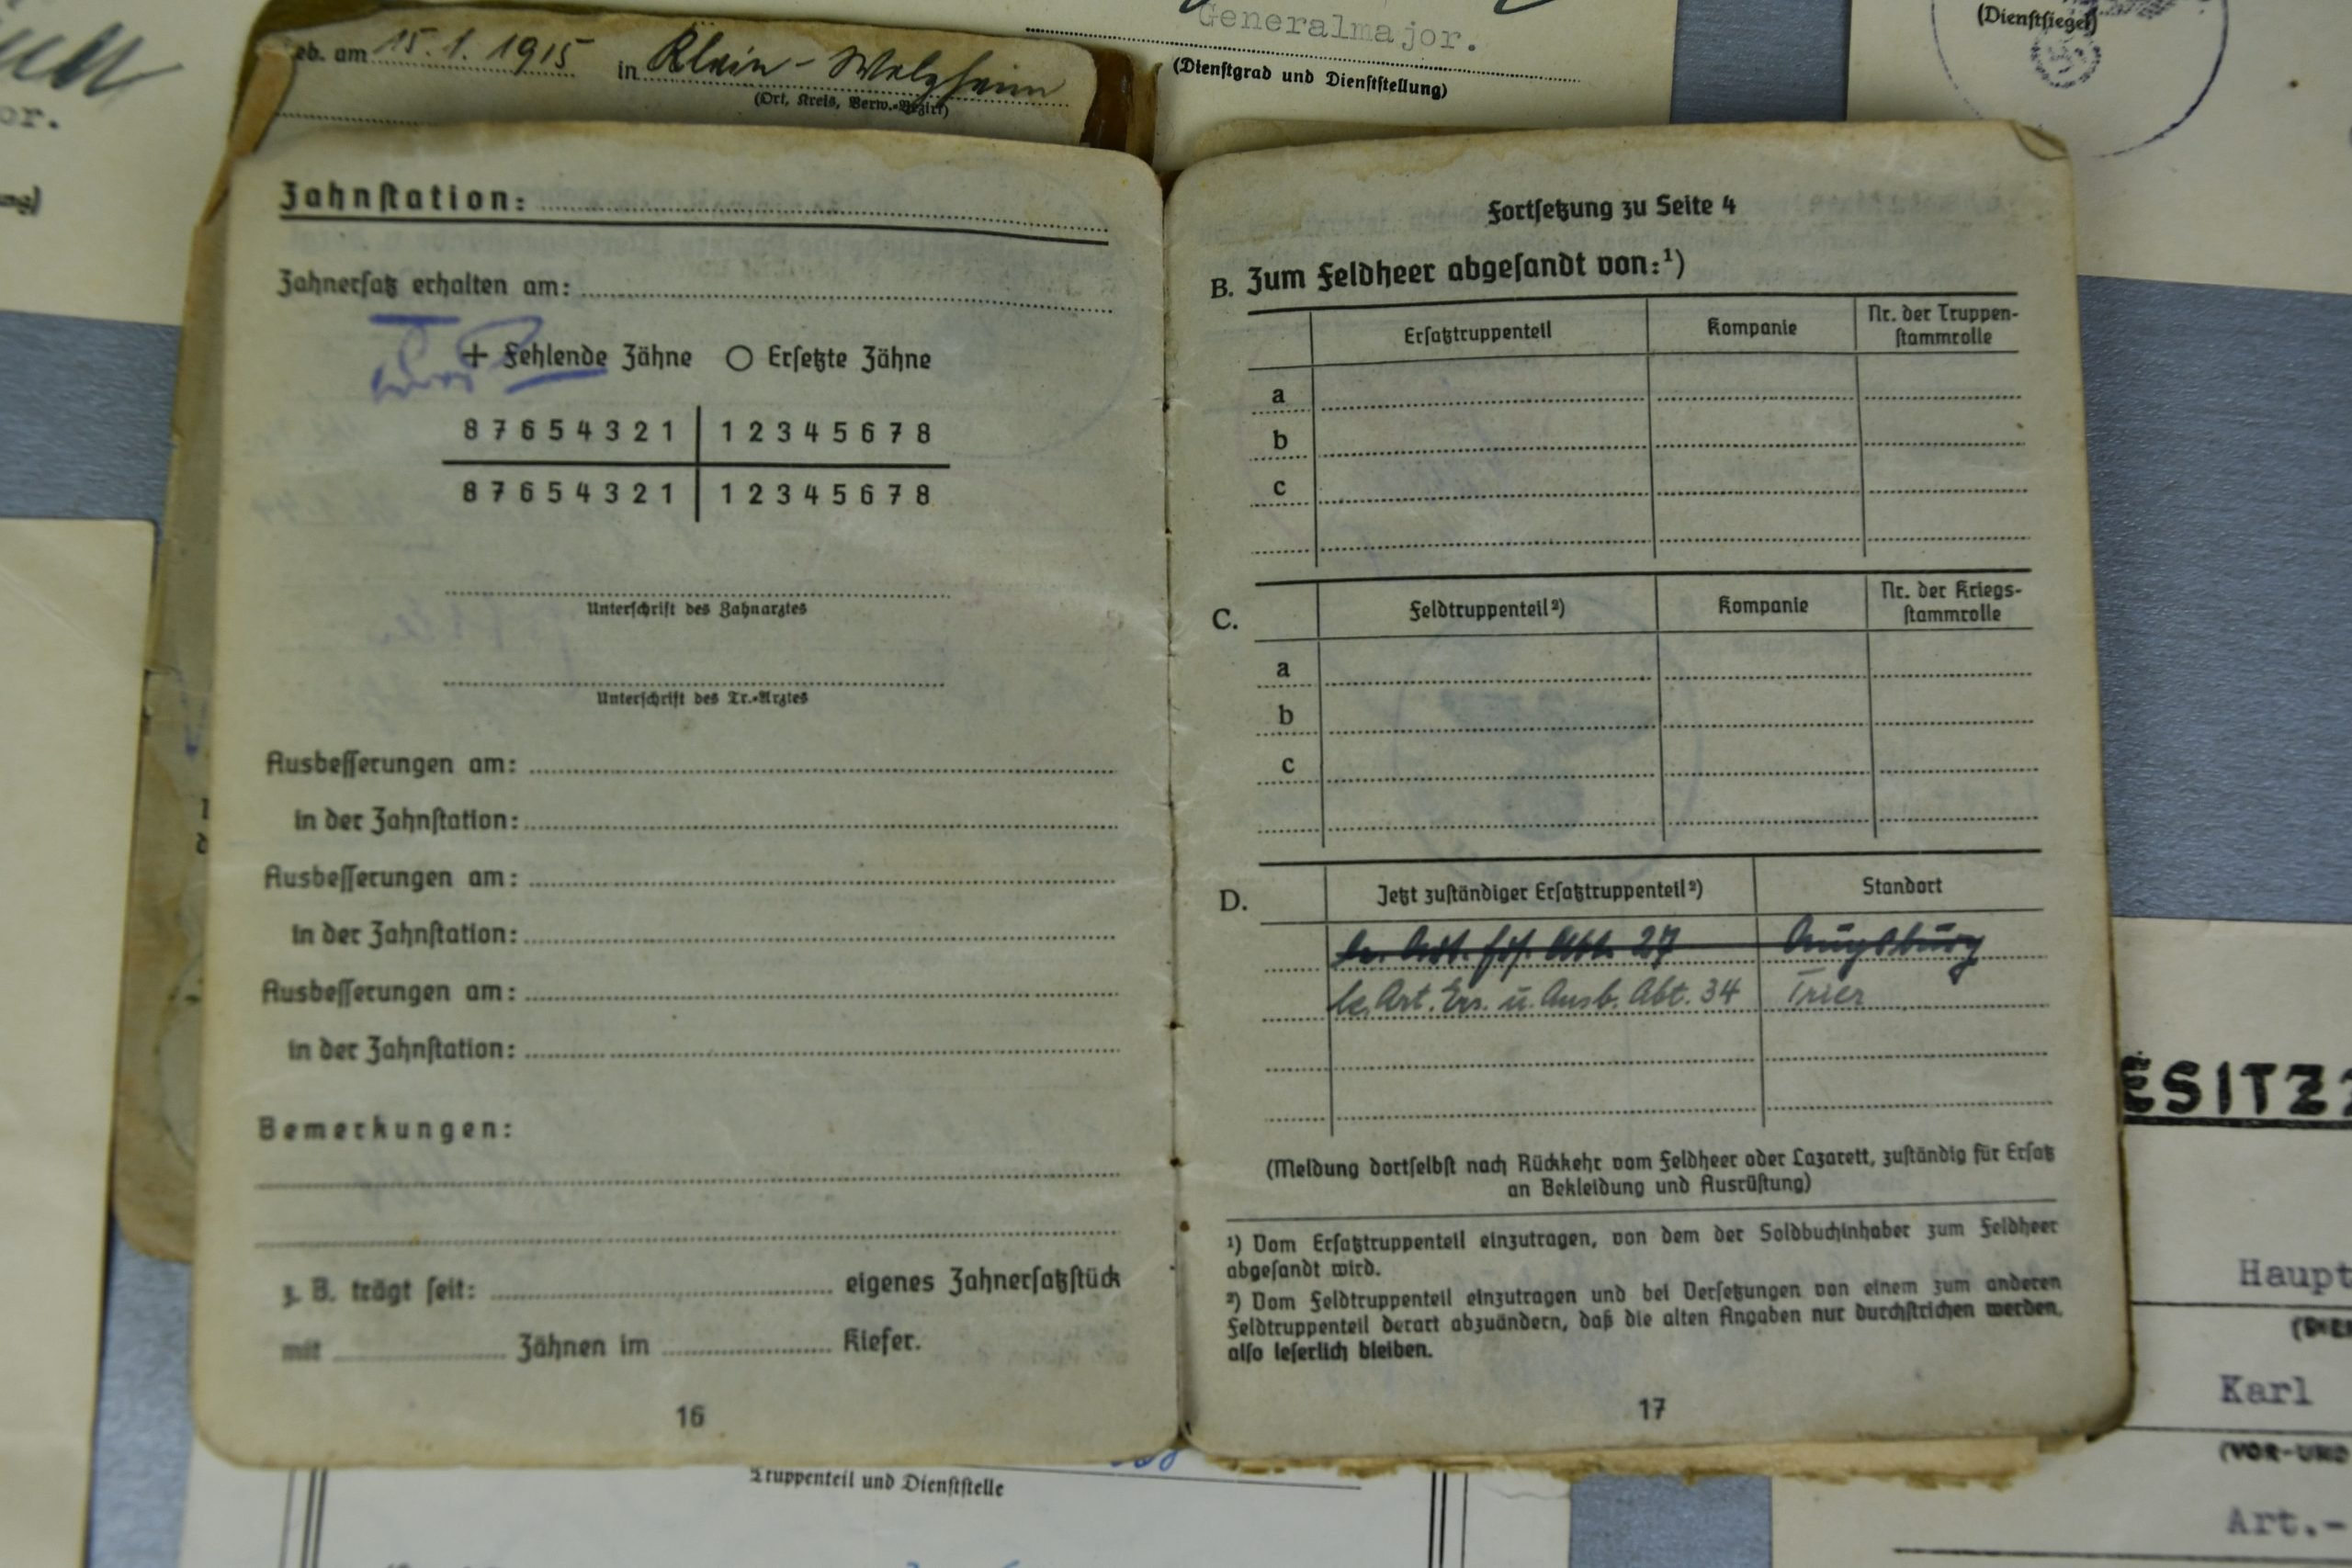 or.
eb. am 15.1.1915 in Klein-Welzheim
(Ort, Kreis, Verw.-Bezirk)
Generalmajor.
(Dienstgrad und Dienststellung)
(Dienstsiegel)
Zahnstation:
Zahnersatz erhalten am:
+ Fehlende Zähne ○ Ersetzte Zähne
8 7 6 5 4 3 2 1 | 1 2 3 4 5 6 7 8
8 7 6 5 4 3 2 1 | 1 2 3 4 5 6 7 8
Unterschrift des Zahnarztes
Unterschrift des Tr.-Arztes
Ausbesserungen am:
in der Zahnstation:
Ausbesserungen am:
in der Zahnstation:
Ausbesserungen am:
in der Zahnstation:
Bemerkungen:
z. B. trägt seit: eigenes Zahnersatzstück
mit Zähnen im Kiefer.
16
Fortsetzung zu Seite 4
B. Zum Feldheer abgesandt von:¹)
Ersatztruppenteil Kompanie Nr. der Truppen-
stammrolle
a
b
c
C. Feldtruppenteil²) Kompanie Nr. der Kriegs-
stammrolle
a
b
c
D. Jetzt zuständiger Ersatztruppenteil²) Standort
Abt. 27 Augsburg
le. Art. Ers. u. Ausb. Abt. 34 Trier
(Meldung dortselbst nach Rückkehr vom Feldheer oder Lazarett, zuständig für Ersatz
an Bekleidung und Ausrüstung)
¹) Vom Ersatztruppenteil einzutragen, von dem der Soldbuchinhaber zum Feldheer
abgesandt wird.
²) Vom Feldtruppenteil einzutragen und bei Versetzungen von einem zum anderen
Feldtruppenteil derart abzuändern, daß die alten Angaben nur durchstrichen werden,
also leserlich bleiben.
17
Truppenteil und Dienststelle
ESITZZ
Haupt
Karl
(VOR-UND
Art.-